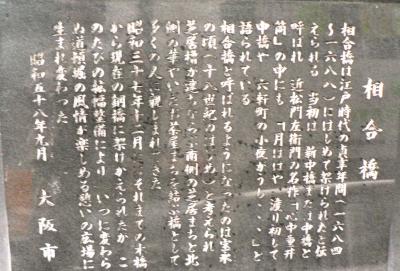 相合橋
相合橋は江戸時代の貞享年間(一六八四
〜一六八八)にはじめて架けられたと伝
えられる 当初は 新中橋または中橋と
呼ばれ 近松門左衛門の名作「心中重井
筒」の中にも「月ははや 渡り初して
中橋や 六軒町の小夜かうし・・・」と
語られている
相合橋と呼ばれるようになったのは宝永
の頃(十八世紀のはじめ)と考えられ
芝居櫓が建ちならぶ南側の芝居まちと北
側の華やいだお茶屋まちを結ぶ橋として
多くの人に親しまれてきた
昭和三十七年十二月 それまでの木橋
から現在の鋼橋に架けかえられたが こ
のたびの拡幅整備により いつに変わら
ぬ道頓堀の風情が楽しめる憩いの広場に
生まれ変わった
昭和五十八年九月 大阪市